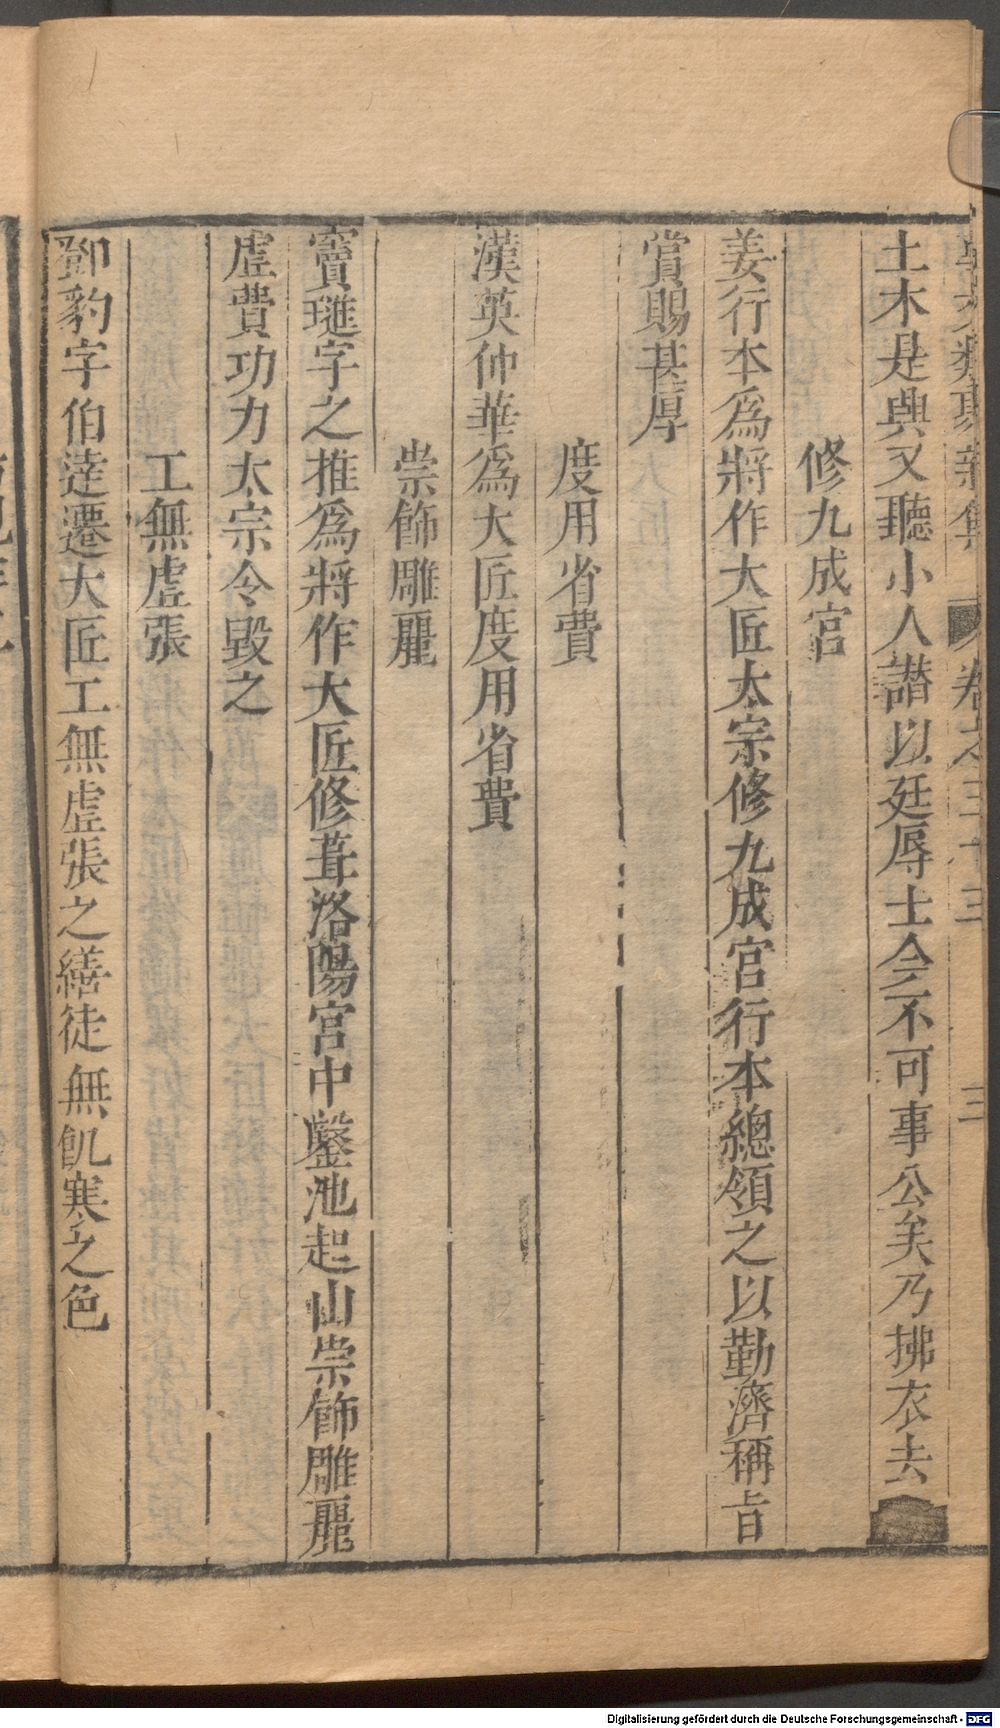 事文類聚新集 卷之三十三 三
土木是興又聽小人譖以廷辱士今不可事公矣乃拂衣去
修九成宮
姜行本爲將作大匠太宗修九成宮行本總領之以勤濟稱旨
賞賜甚厚
度用省費
漢英仲華爲大匠度用省費
崇飾雕麗
竇璡字之推爲將作大匠修葺洛陽宮中鑿池起山崇飾雕麗
虛費功力太宗令毀之
工無虛張
鄧豹字伯逹遷大匠工無虛張之繕徒無飢寒之色
Digitalisierung gefördert durch die Deutsche Forschungsgemeinschaft - DFG